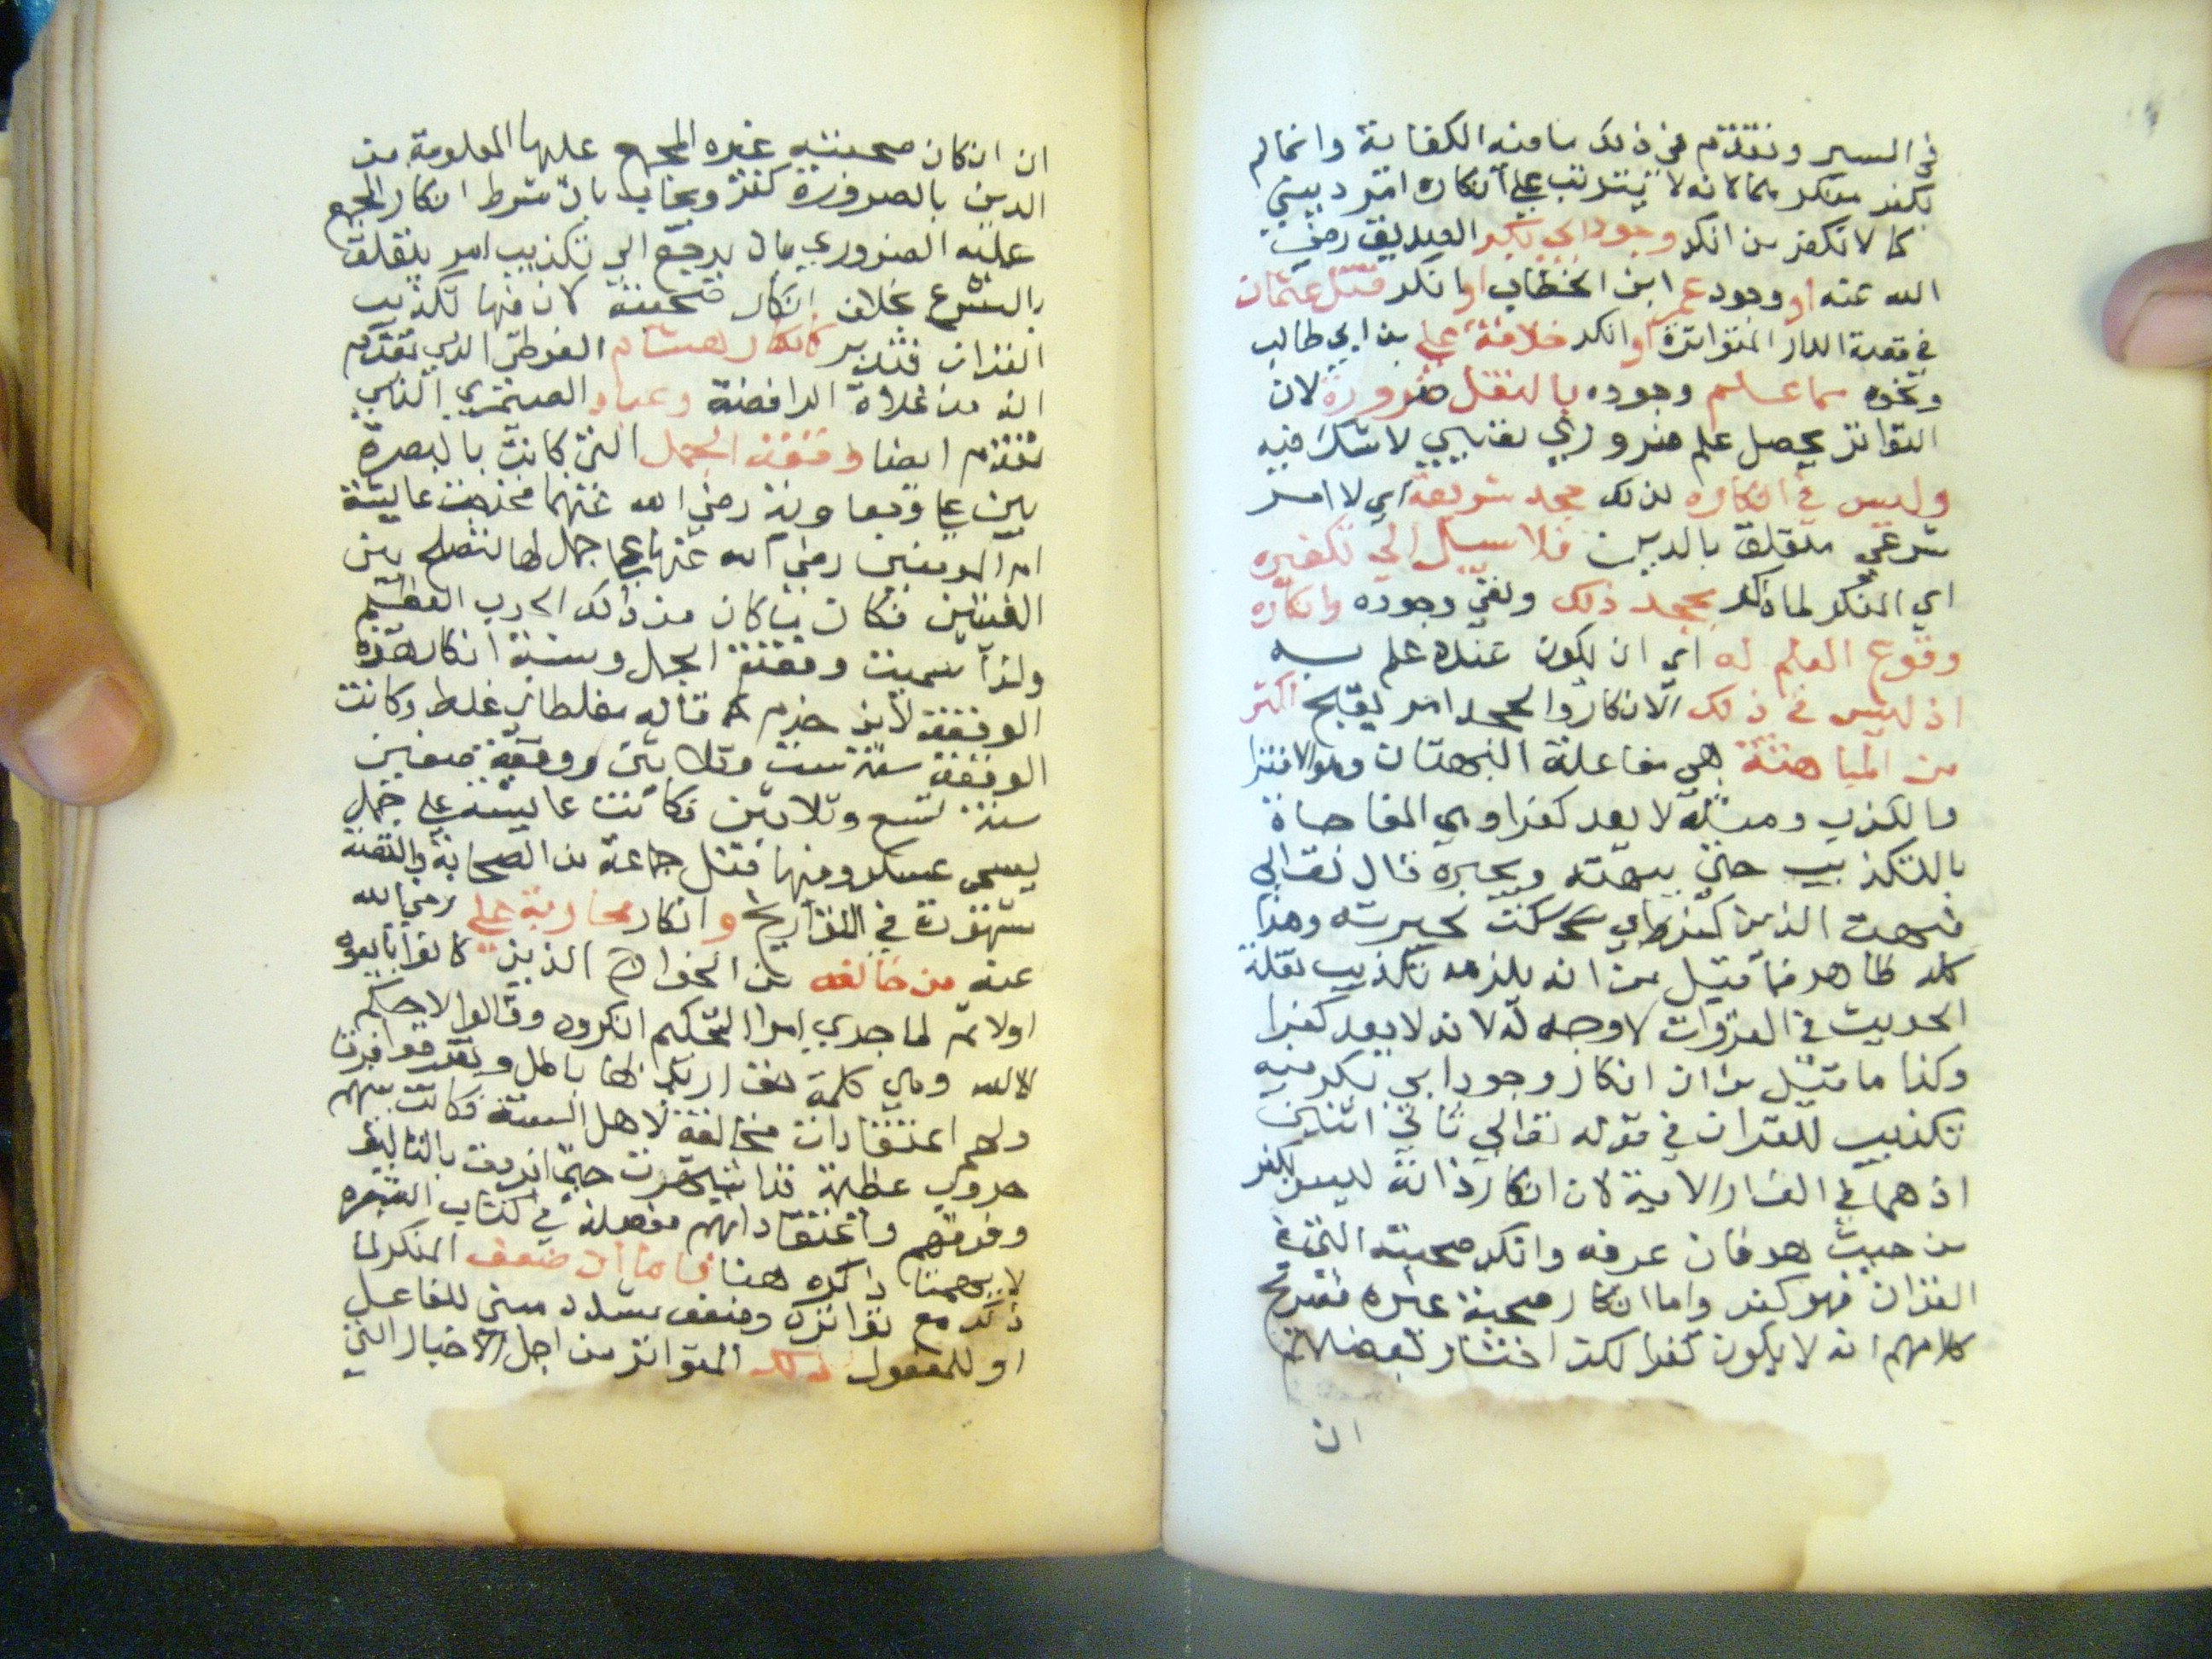 في السير وتقدم في ذلك ما فيه الكفاية وانما لم
نكفر منكر هما لانه لا يترتب على انكاره امر ديني
كما لا نكفر من انكر وجود ابي بكر الصديق رضي
الله عنه او وجود عمر ابن الخطاب او انكر قتل عثمان
في قصة الدار المتواترة او انكر خلافة علي بن ابي طالب
ونحوه مما علم وجوده بالنقل ضرورة لان
التواتر يحصل علم ضروري يقيني لا شك فيه
وليس في انكاره لذلك جحد شريعة اي لا امر
شرعي متعلق بالدين فلا سبيل الى تكفيره
اي المنكر لما ذكر بجحد ذلك ونفي وجوده وانكاره
وقوع العلم له اي ان يكون عنده علم به
اذ ليس في ذلك الانكار والجحد امر يقبح اكثر
من المباهتة هي مفاعلة البهتان وهو الافترا
والكذب ومثله لا يعد كفرا وهي المفاجاة
بالتكذيب حتى يبهته ويحيره قال تعالى
فبهت الذي كفر اي سكت لحيرته وهذا
كله ظاهر فما قيل من انه يلزمه تكذيب نقلة
الحديث في الغزوات لا وجه له لانه لا يعد كفرا
وكذا ما قيل من ان انكار وجود ابي بكر فيه
تكذيب للقران في قوله تعالى ثاني اثنين
اذ هما في الغار الاية لان انكار ذاته ليس بكفر
من حيث هو فان عرفه وانكر صحبته التي في
القران فهو كفر واما انكار صحبة غيره فصريح
كلامهم انه لا يكون كفرا لكن اختار بعضهم
ان
ان انكان صحبته غيره المجمع عليها المعلومة من
الدين بالضرورة كفر ويجاب بان شرط انكار المجمع
عليه الضروري بان يرجع الى تكذيب امر يتعلق
بالشرع بخلاف انكار صحبته لان فيها تكذيب
القران فتدبر كانكار هشام الفوطي الذي تقدم
انه من غلاة الرافضة وعباد الصيمري الذي
تقدم ايضا وقعة الجمل التي كانت بالبصرة
بين علي ومعاوية رضي الله عنهما فخرجت عايشة
ام المومنين رضي الله عنها على جمل لها لتصلح بين
الفئتين فكان ما كان من ذلك الحرب العظيم
ولذا سميت وقعة الجمل ونسبة انكار هذه
الوقعة لابن حزم كما قاله مغلطاي غلط وكانت
الوقعة سنة ست وثلاثين ووقعة صفين
سنة تسع وثلاثين فكانت عايشة على جمل
يسمى عسكر وفيها قتل جماعة من الصحابة والقصة
مشهورة في التواريخ وانكار محاربة علي رضي الله
عنه من خالفه من الخوارج الذين كانوا بايعوه
اولا ثم لما جرى امر التحكيم انكروه وقالوا لا حكم
الا لله وهي كلمة حق اريد بها باطل وتفرقوا فرقا
ولهم اعتقادات مخالفة لاهل السنة فكانت بينهم
حروب عظيمة قد اشتهرت حتى افردت بالتاليف
وفرقهم واعتقاداتهم مفصلة في كتاب التبصره
لا يهمنا ذكره هنا فاما ان ضعف المنكر لما
ذكر مع تواتره وضعف مشدد مبني للفاعل
او للمفعول ذلك المتواتر من اجل الاخبار التي